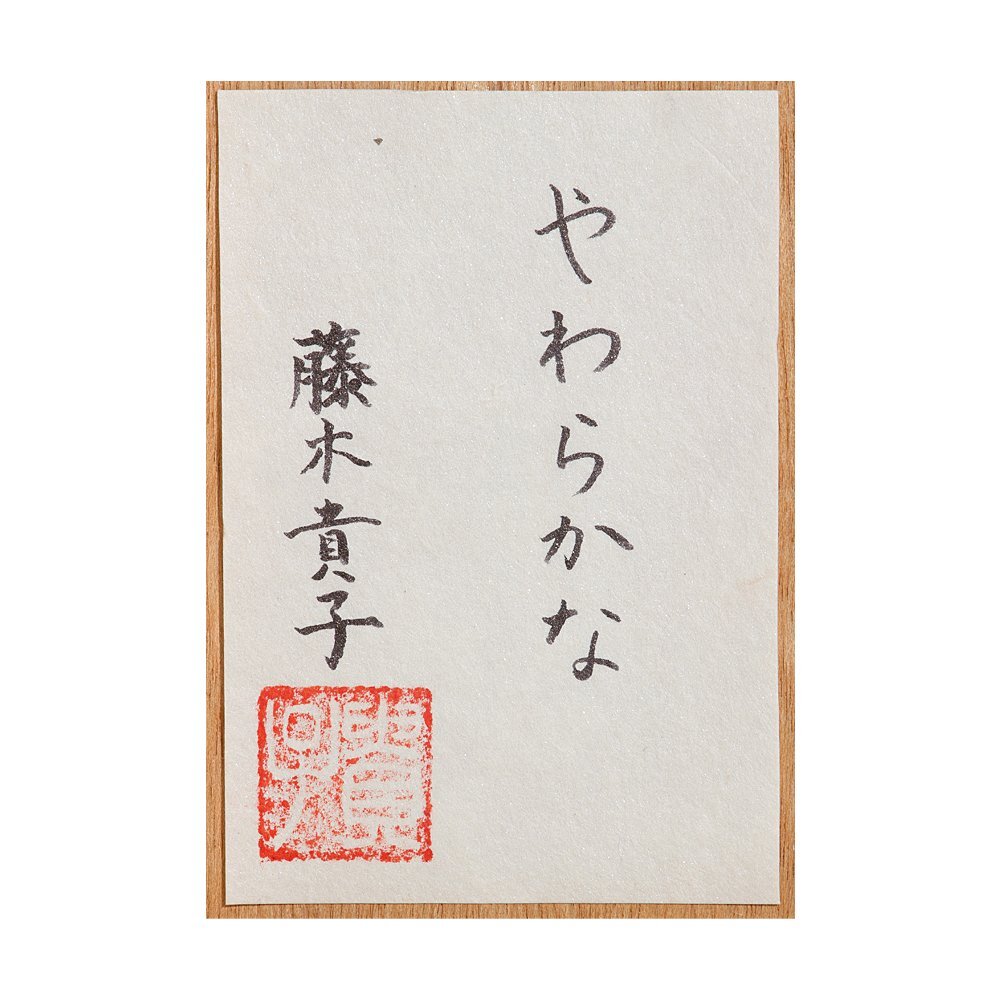 やわらかな
藤木貴子